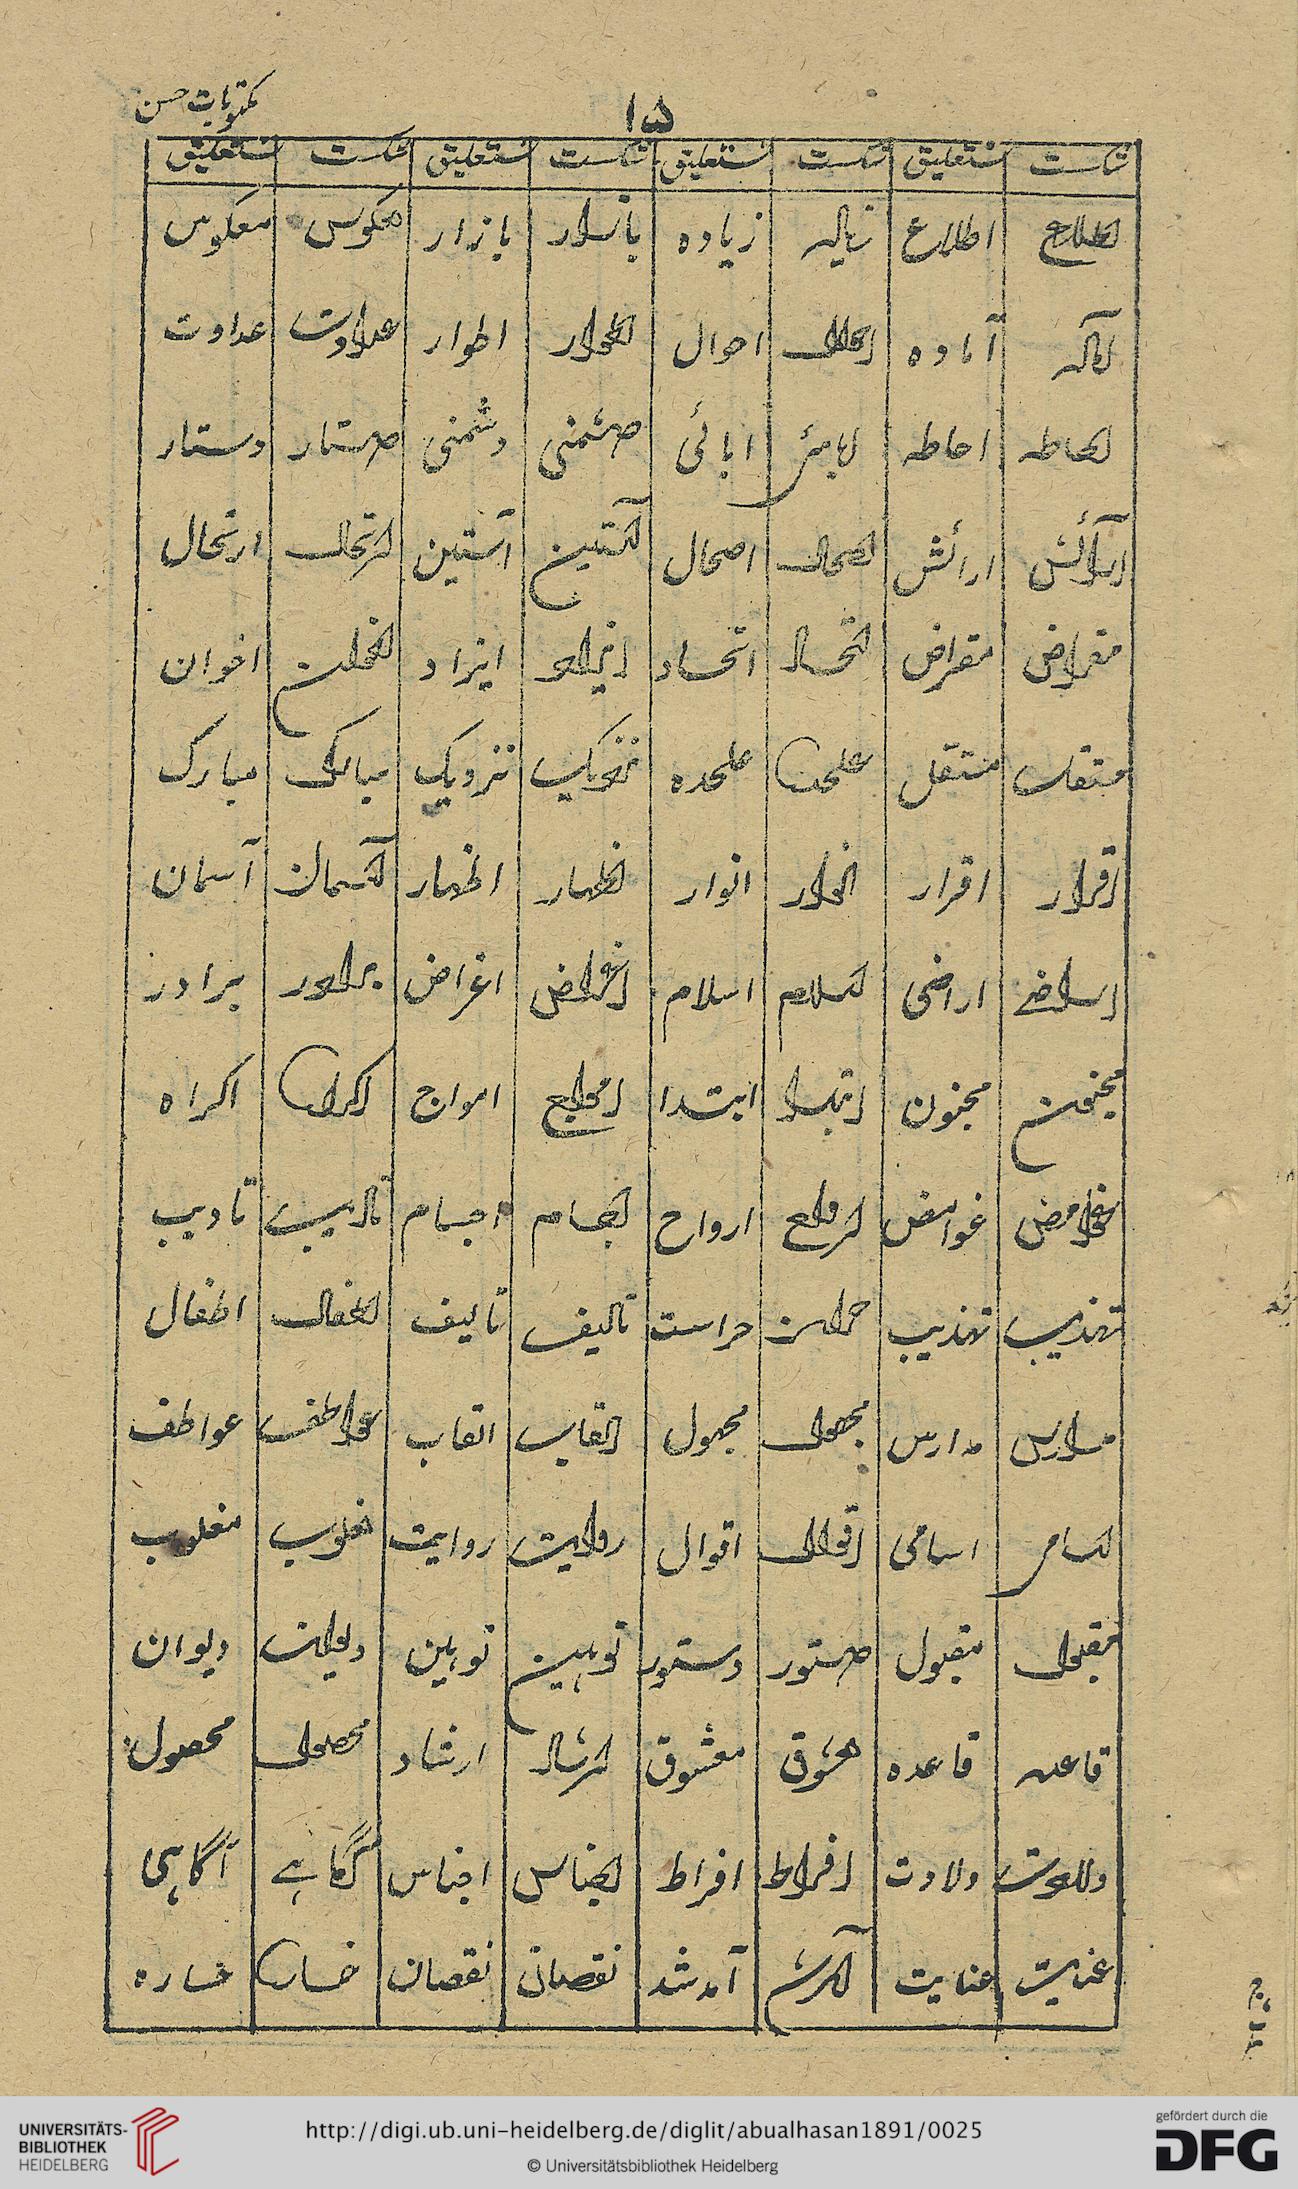 ۱۵
مکتوبات حسن
شکست نستعلیق شکست نستعلیق شکست نستعلیق شکست نستعلیق
اطلاع اطلاع زیاده زیاده بازار بازار معکوس معکوس
آماده آماده احوال احوال اطوار اطوار عداوت عداوت
احاطه احاطه ابائی ابائی دشمنی دشمنی دستار دستار
ارائش ارائش اصحال اصحال آستین آستین ارتحال ارتحال
مقراض مقراض اتحاد اتحاد ایزاد ایزاد اخوان اخوان
منتقل منتقل علحده علحده نزدیک نزدیک مبارک مبارک
اقرار اقرار انوار انوار اظهار اظهار آسمان آسمان
اراضی اراضی اسلام اسلام اغراض اغراض برادر برادر
مجنون مجنون ابتدا ابتدا امواج امواج اکراه اکراه
غوامض غوامض ارواح ارواح اجسام اجسام تادیب تادیب
تهذیب تهذیب حراست حراست تالیف تالیف اطفال اطفال
مدارس مدارس مجهول مجهول القاب القاب عواطف عواطف
اسامی اسامی اقوال اقوال روایت روایت مغلوب مغلوب
مقبول مقبول دستور دستور توہین توہین دیوان دیوان
قاعده قاعده معشوق معشوق ارشاد ارشاد محصول محصول
ولادت ولادت افراط افراط اجناس اجناس آگاہی آگاہی
عنایت عنایت آمدشد آمدشد نقصان نقصان خساره خساره
UNIVERSITÄTS-
BIBLIOTHEK
HEIDELBERG
http://digi.ub.uni-heidelberg.de/diglit/abualhasan1891/0025
© Universitätsbibliothek Heidelberg
gefördert durch die
DFG